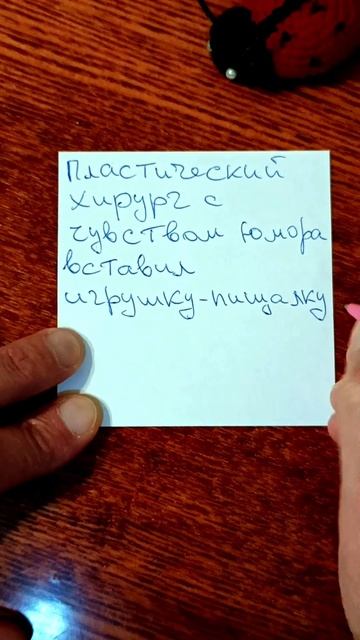 Пластический
хирург с
чувством юмора
вставил
игрушку-пищалку